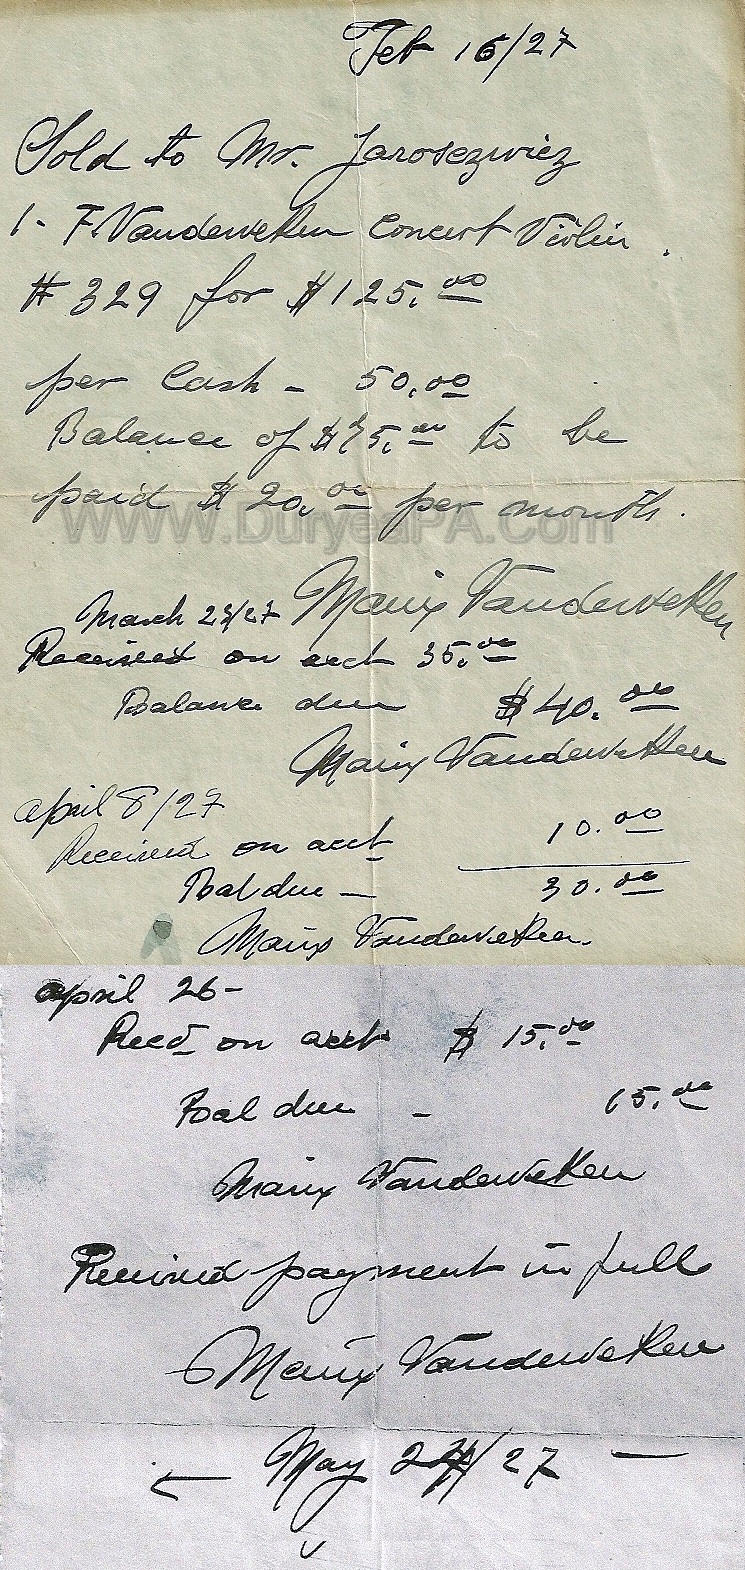 Feb 16/27
Sold to Mr. Jarosezwicz
1 - F. Vanderveken Concert Violin.
# 329 for $125.00
per Cash - 50.00
Balance of $75.00 to be
paid $20.00 per month.
WWW.DuryeaPA.Com
Vanderveken
March /27
Received on acct 35.00
Balance due $40.00
Vanderveken
april 8/27
Received on acct 10.00
Bal due - 30.00
Vanderveken.
april 26-
Recd on acct $15.00
Bal due - 15.00
Vanderveken
Received payment in full
Vanderveken
May 24/27 -